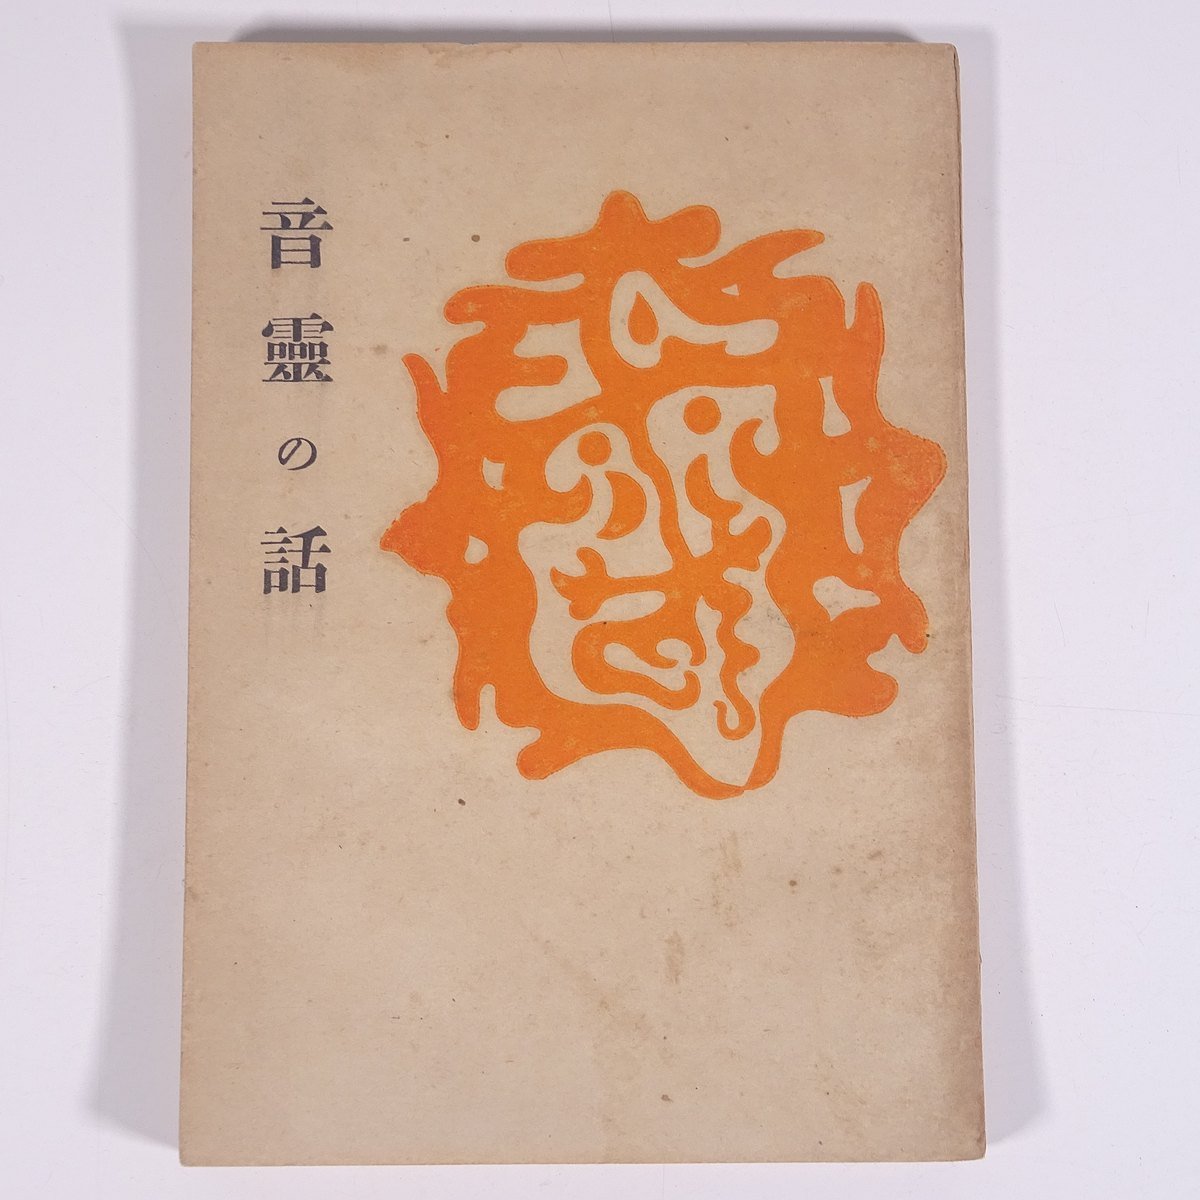 音靈の話